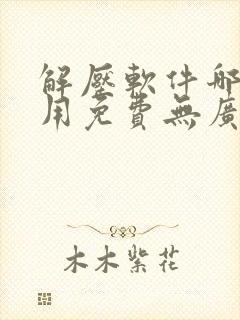 解壓軟件哪
用免費無廣
木木紫花